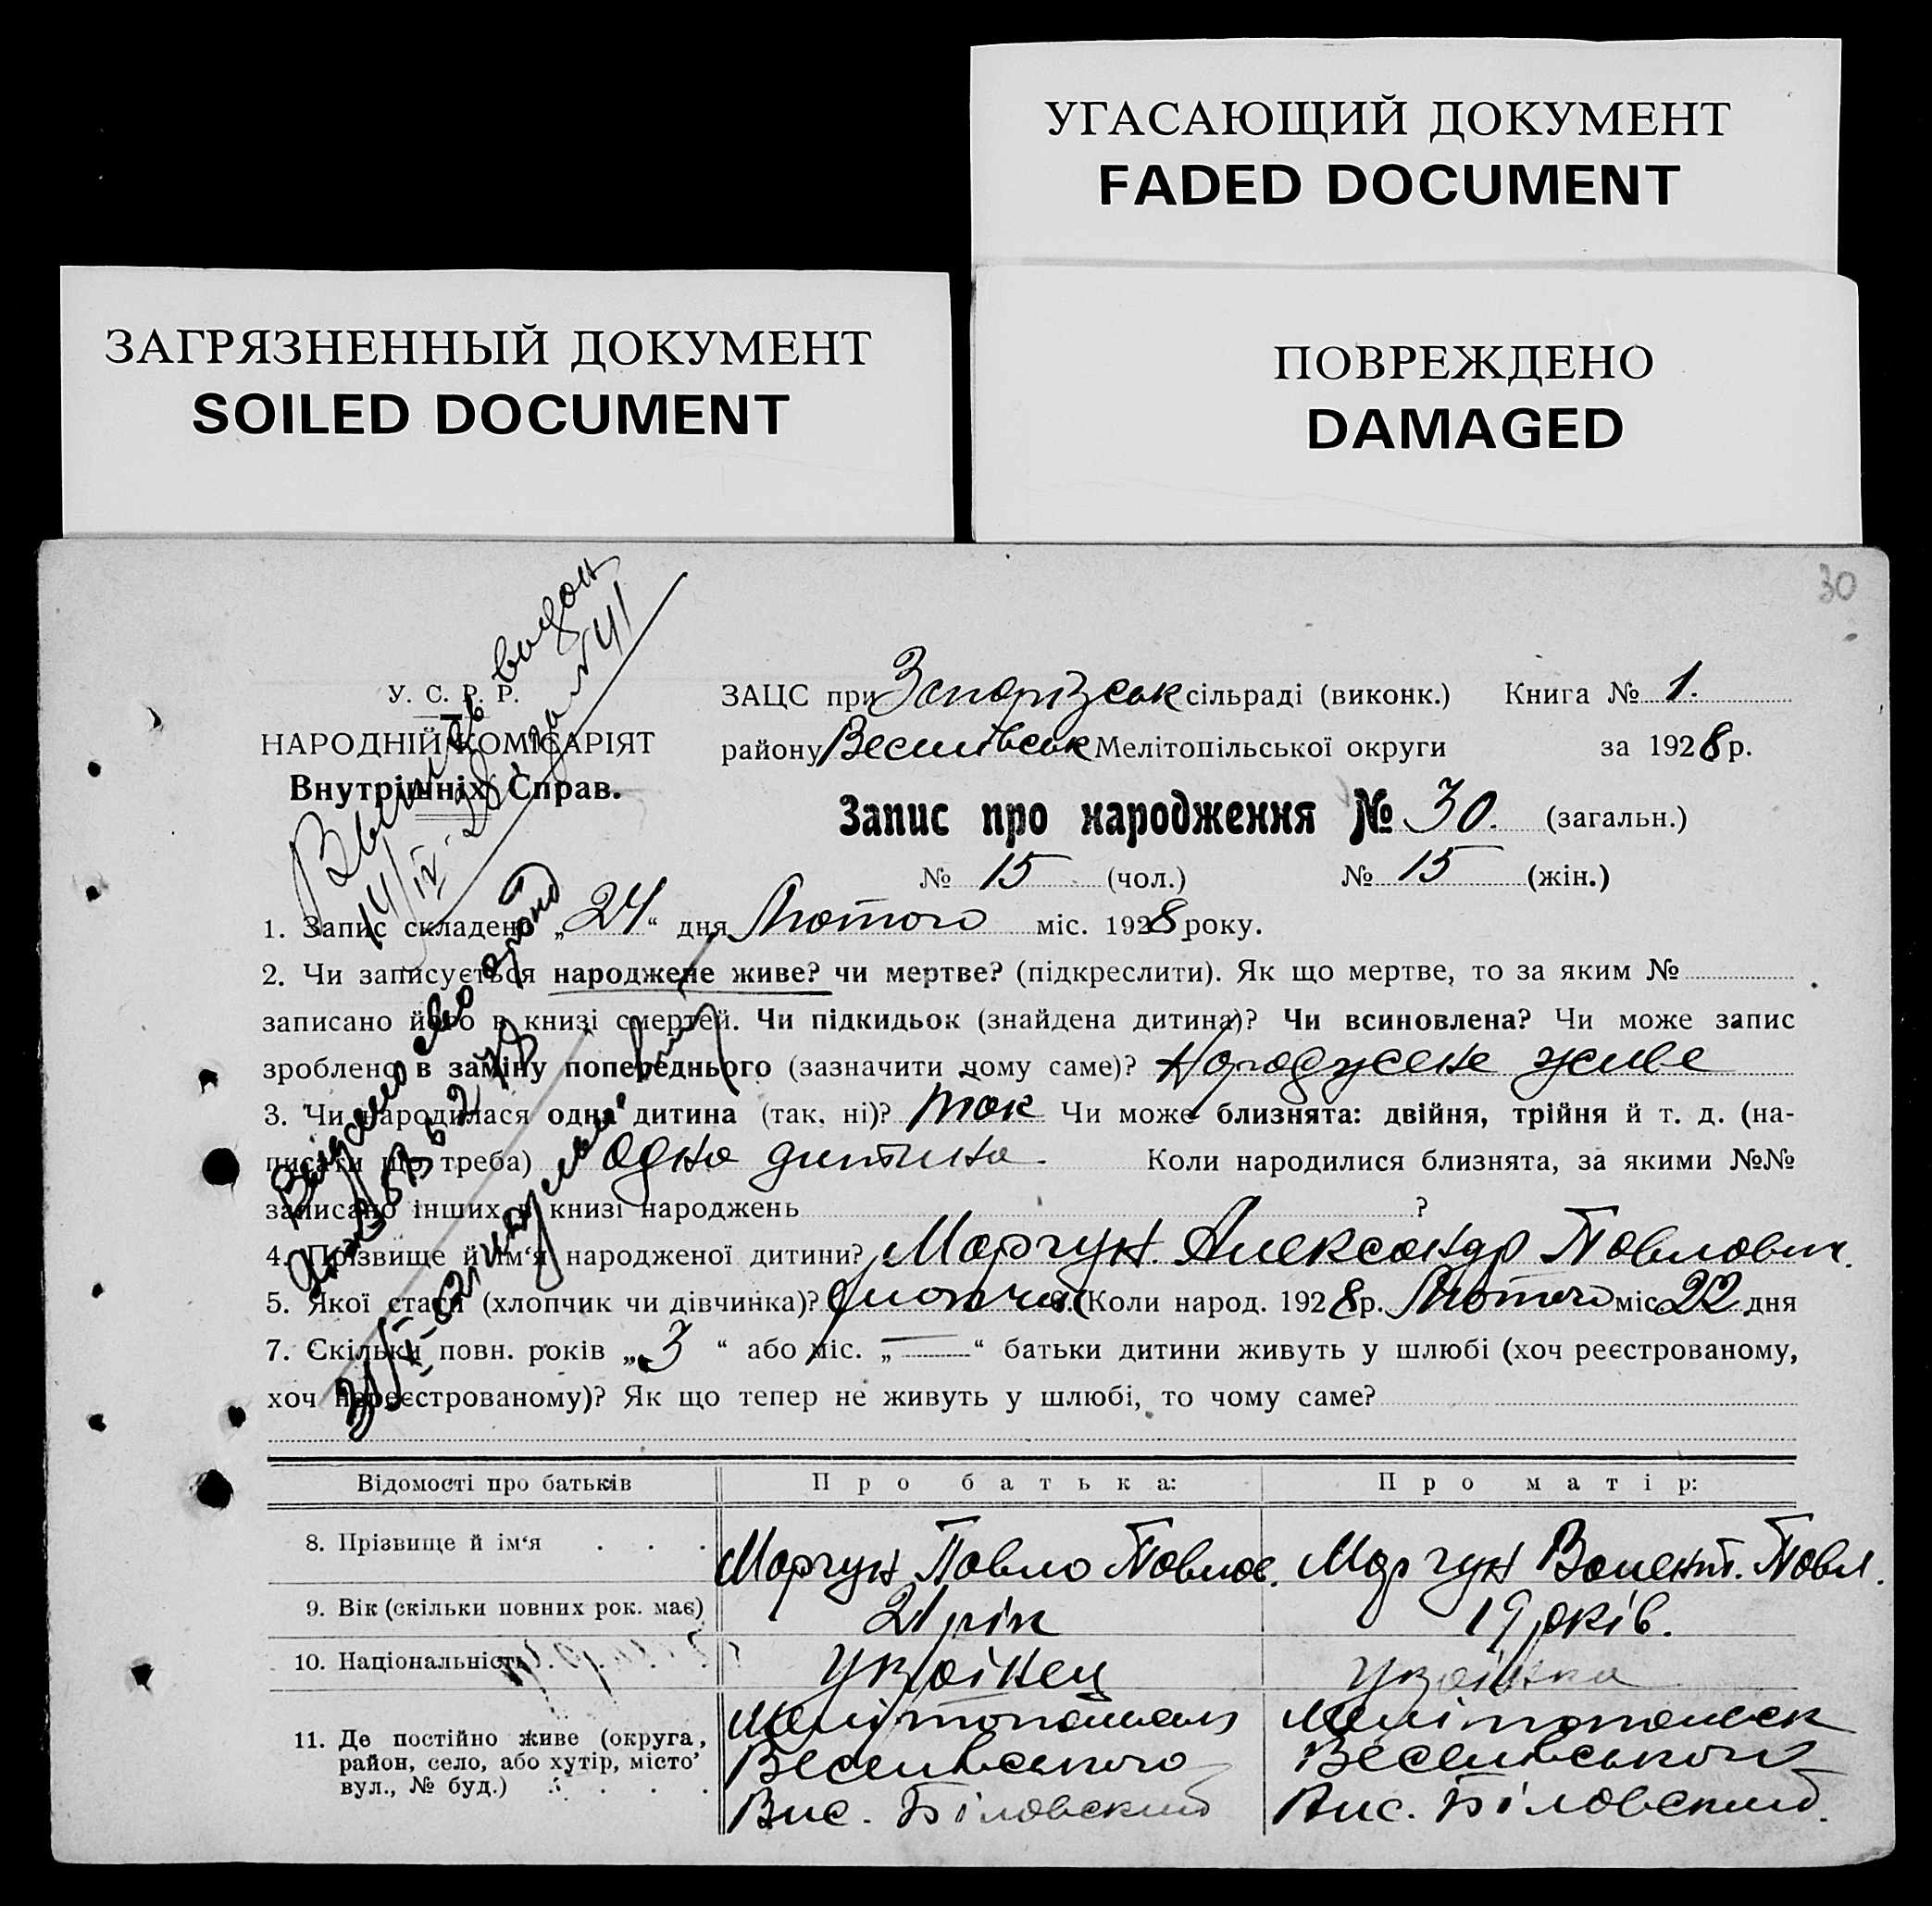 УГАСАЮЩИЙ ДОКУМЕНТ
FADED DOCUMENT
ЗАГРЯЗНЕННЫЙ ДОКУМЕНТ
SOILED DOCUMENT
ПОВРЕЖДЕНО
DAMAGED
30
У. С. Р. Р.
НАРОДНІЙ КОМІСАРІЯТ
Внутрішніх Справ.
ЗАЦС при Запорізськ сільраді (виконк.) Книга № 1.
району Веселівськ Мелітопільської округи за 1928 р.
Запис про народження № 30. (загальн.)
№ 15 (чол.) № 15 (жін.)
1. Запис складено „24“ дня Лютого міс. 1928 року.
2. Чи записується народжене живе? чи мертве? (підкреслити). Як що мертве, то за яким №
записано його в книзі смертей. Чи підкидьок (знайдена дитина)? Чи всиновлена? Чи може запис
зроблено в заміну попереднього (зазначити чому саме)? Народжене живе
3. Чи народилася одна дитина (так, ні)? так Чи може близнята: двійня, трійня й т. д. (на-
писати що треба) одна дитина. Коли народилися близнята, за якими №№
записано інших в книзі народжень ?
4. Прізвище й ім‘я народженої дитини? Моргун Александр Павлович.
5. Якої стати (хлопчик чи дівчинка)? Хлопчик 6. (Коли народ. 1928 р. Лютого міс 22 дня
7. Скільки повн. років „3“ або міс. „—“ батьки дитини живуть у шлюбі (хоч реєстрованому,
хоч нереєстрованому)? Як що тепер не живуть у шлюбі, то чому саме?
Відомості про батьків Про батька: Про матір:
8. Прізвище й ім‘я . . . Моргун Павло Павлов. Моргун Валент. Павл.
9. Вік (скільки повних рок. має) 21 рік 19 років.
10. Національність . . . . Українец Українка
11. Де постійно живе (округа, Мелітопольськ Мелітопольск
район, село, або хутір, місто’ Веселівського Веселівського
вул., № буд.) . . . . Вис. Біловский Вис. Біловский.